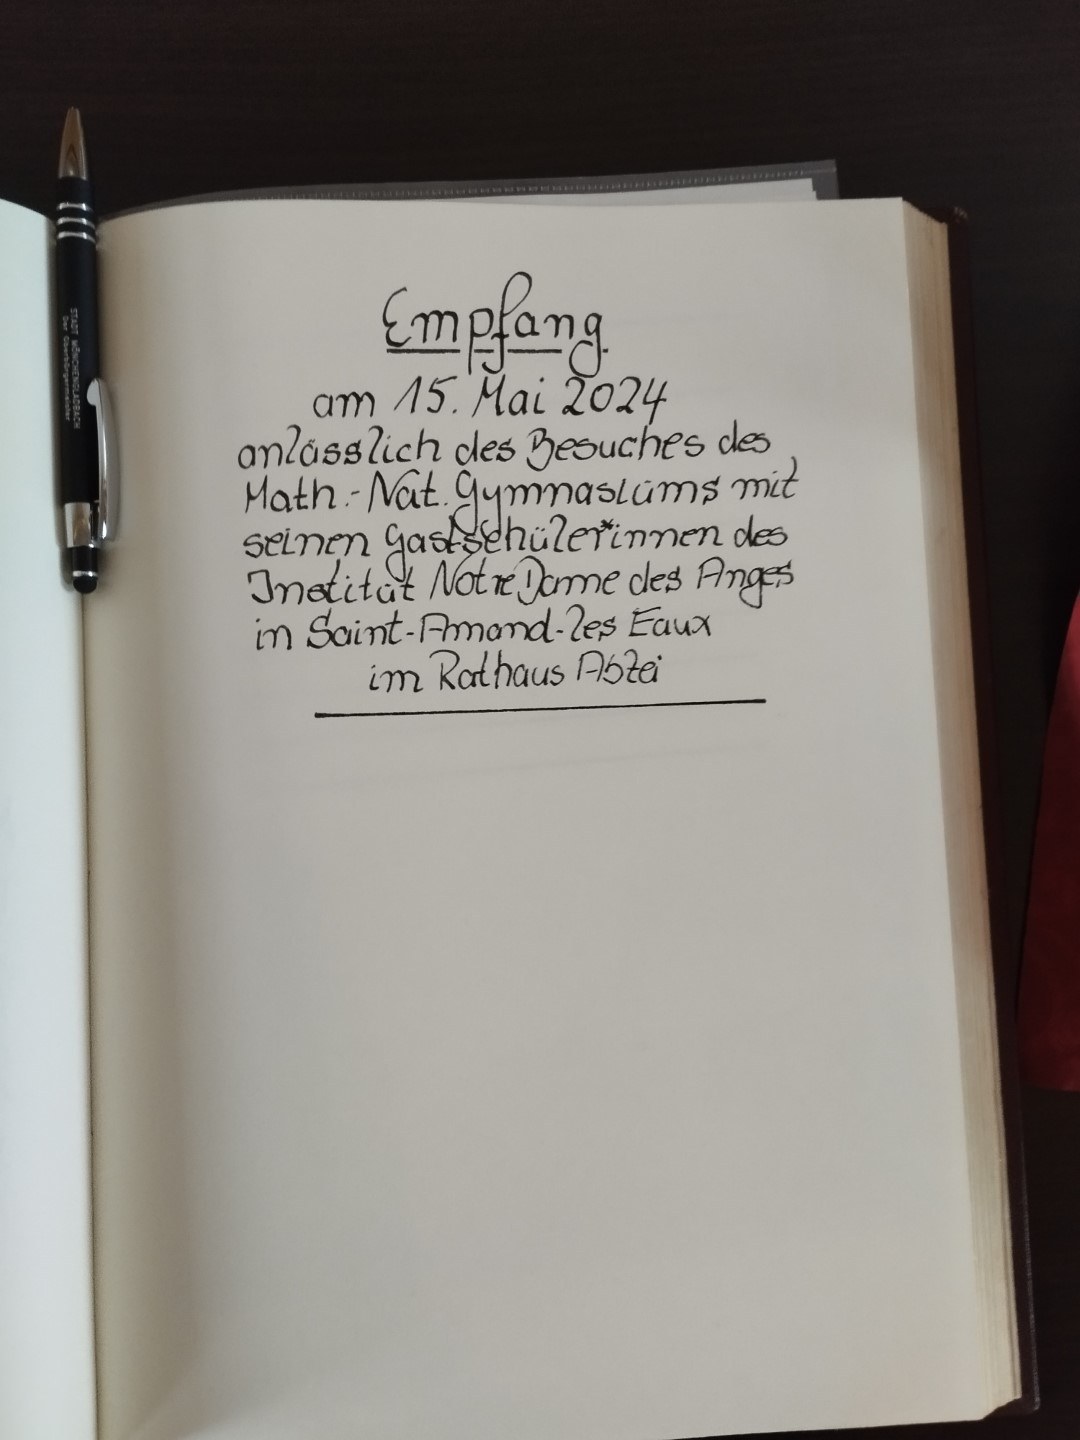 STADT MÖNCHENGLADBACH
Der Oberbürgermeister
Empfang
am 15. Mai 2024
anlässlich des Besuches des
Math.-Nat. Gymnasiums mit
seinen Gastschüler*innen des
Institut Notre Dame des Anges
in Saint-Amand-les Eaux
im Rathaus Abtei